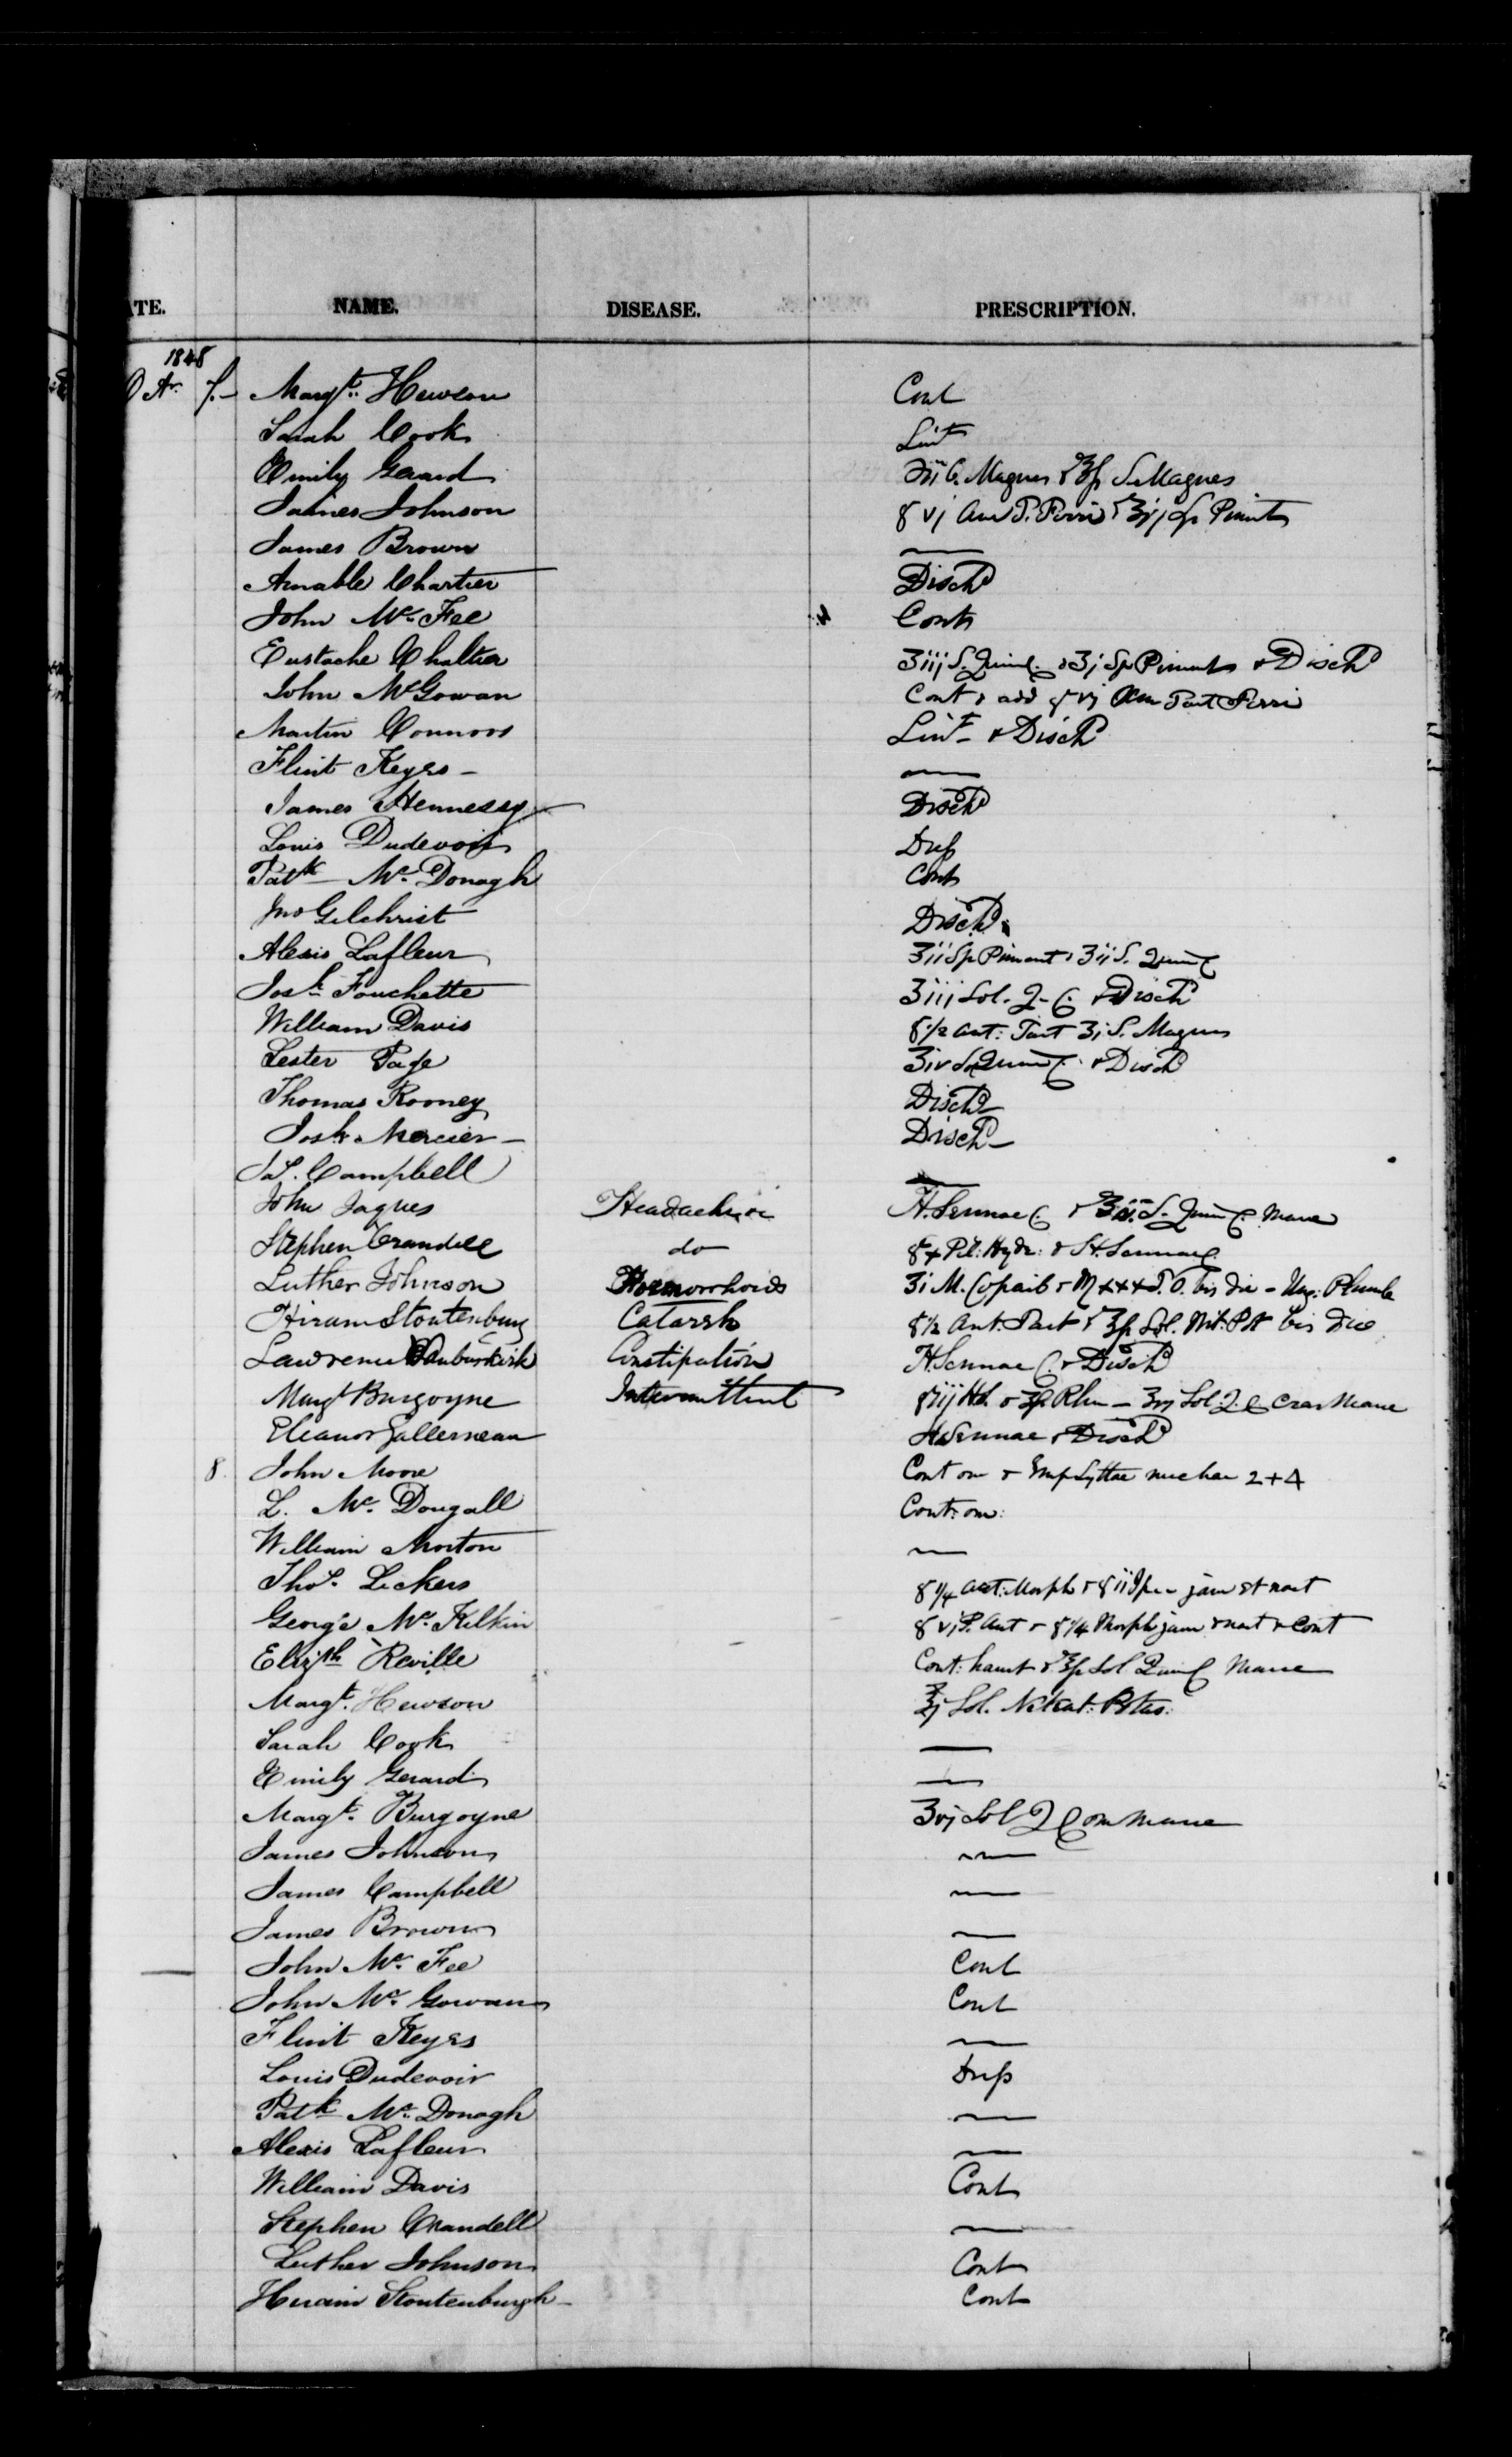 ATE. NAME. DISEASE. PRESCRIPTION.
1848
7.- Margt. Hewson Cont
Sarah Cook Lint
Emily Gerard C. Magnes & S. Magnes
James Johnson vj Am T. Ferri & Sp Piment
James Brown —
Amable Chartier Dischd
John Mc. Fee Cont
Eustache Chaltier ʒiij S. Quin C. & ʒj Sp Piment & Dischd
John McGowan Cont & add gr vj Am Tart Ferri
Martin Connors Lint & Dischd
Flint Keyes - —
James Hennessy Dischd
Louis Dudevoir
Patk Mc. Donagh Cont
Jno Gilchrist Dischd
Alexis Lafleur ʒii Sp Piment & ʒij S. Quin C
Josh Fouchette ʒiij Sol. Q. C. & Dischd
William Davis gr 1/2 Ant: Tart ʒi S. Magnes
Lester Page ʒiv Sol Quin C. & Dischd
Thomas Rooney Dischd
Josh Mercier - Dischd -
Jas. Campbell —
John Jaques H. Sennae C. & S. Quin C. Mane
Stephen Crandell do gr x Pil: Hydr: & H. Sennae C.
Luther Johnson Hoemorrhoids ʒi M. Copaib & M xxx T. O. bis die - Ung: Plumb
Hiram Stoutenburg Catarrh gr 1/2 Ant: Tart & Sol. Nit: Pot bis die
Lawrence Vanburkirk Constipation H. Sennae C. & Dischd
Margt Burgoyne Intermittent Rhei — ʒvj Sol: Q. C cras Mane
Eleanor Gallerneau H. Sennae & Dischd
8. John Moore Cont om & Emp Lyttae nuchae 2 + 4
L. Mc. Dougall Cont: om:
William Morton —
Thos. Lickers gr 1/4 Acet: Morph & gr ii Ipec jam et noct
George Mc. Kilkin gr vj P. Ant & gr 1/4 Morph jam & noct & Cont
Elizth Reville Cont: haust & Sol Quin C Mane
Margt. Hewson Sol. Nitrat: Potas:
Sarah Cook —
Emily Gerard —
Margt. Burgoyne ʒvj Sol Q C om mane
James Johnson —
James Campbell —
James Brown —
John Mc. Fee Cont
John Mc. Gowan Cont
Flint Keyes —
Louis Dudevoir
Patk Mc. Donagh —
Alexis Lafleur —
William Davis Cont
Stephen Crandell —
Luther Johnson Cont
Hiram Stoutenburgh - Cont